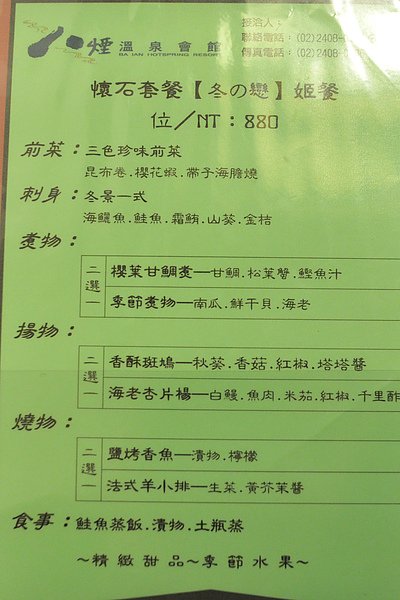 八煙 溫泉會館
BA JAN HOTSPRING RESORT
授洽人:
聯絡電話:(02)2408-
傳真電話:(02)2408-
懷石套餐【冬の戀】姬餐
位/NT:880
前菜:三色珍味前菜
昆布卷.櫻花蝦.帶子海膽燒
刺身:冬景一式
海鱺魚.鮭魚.霜鮪.山葵.金桔
煮物:
二選一
櫻葉甘鯛煮—甘鯛.松葉蟹.鰹魚汁
季節煮物—南瓜.鮮干貝.海老
揚物:
二選一
香酥斑鳩—秋葵.香菇.紅椒.塔塔醬
海老杏片楊—白鰻.魚肉.米茄.紅椒.千里酢
燒物:
二選一
鹽烤香魚—漬物.檸檬
法式羊小排—生菜.黃芥茉醬
食事:鮭魚蒸飯.漬物.土瓶蒸
~精緻甜品~季節水果~